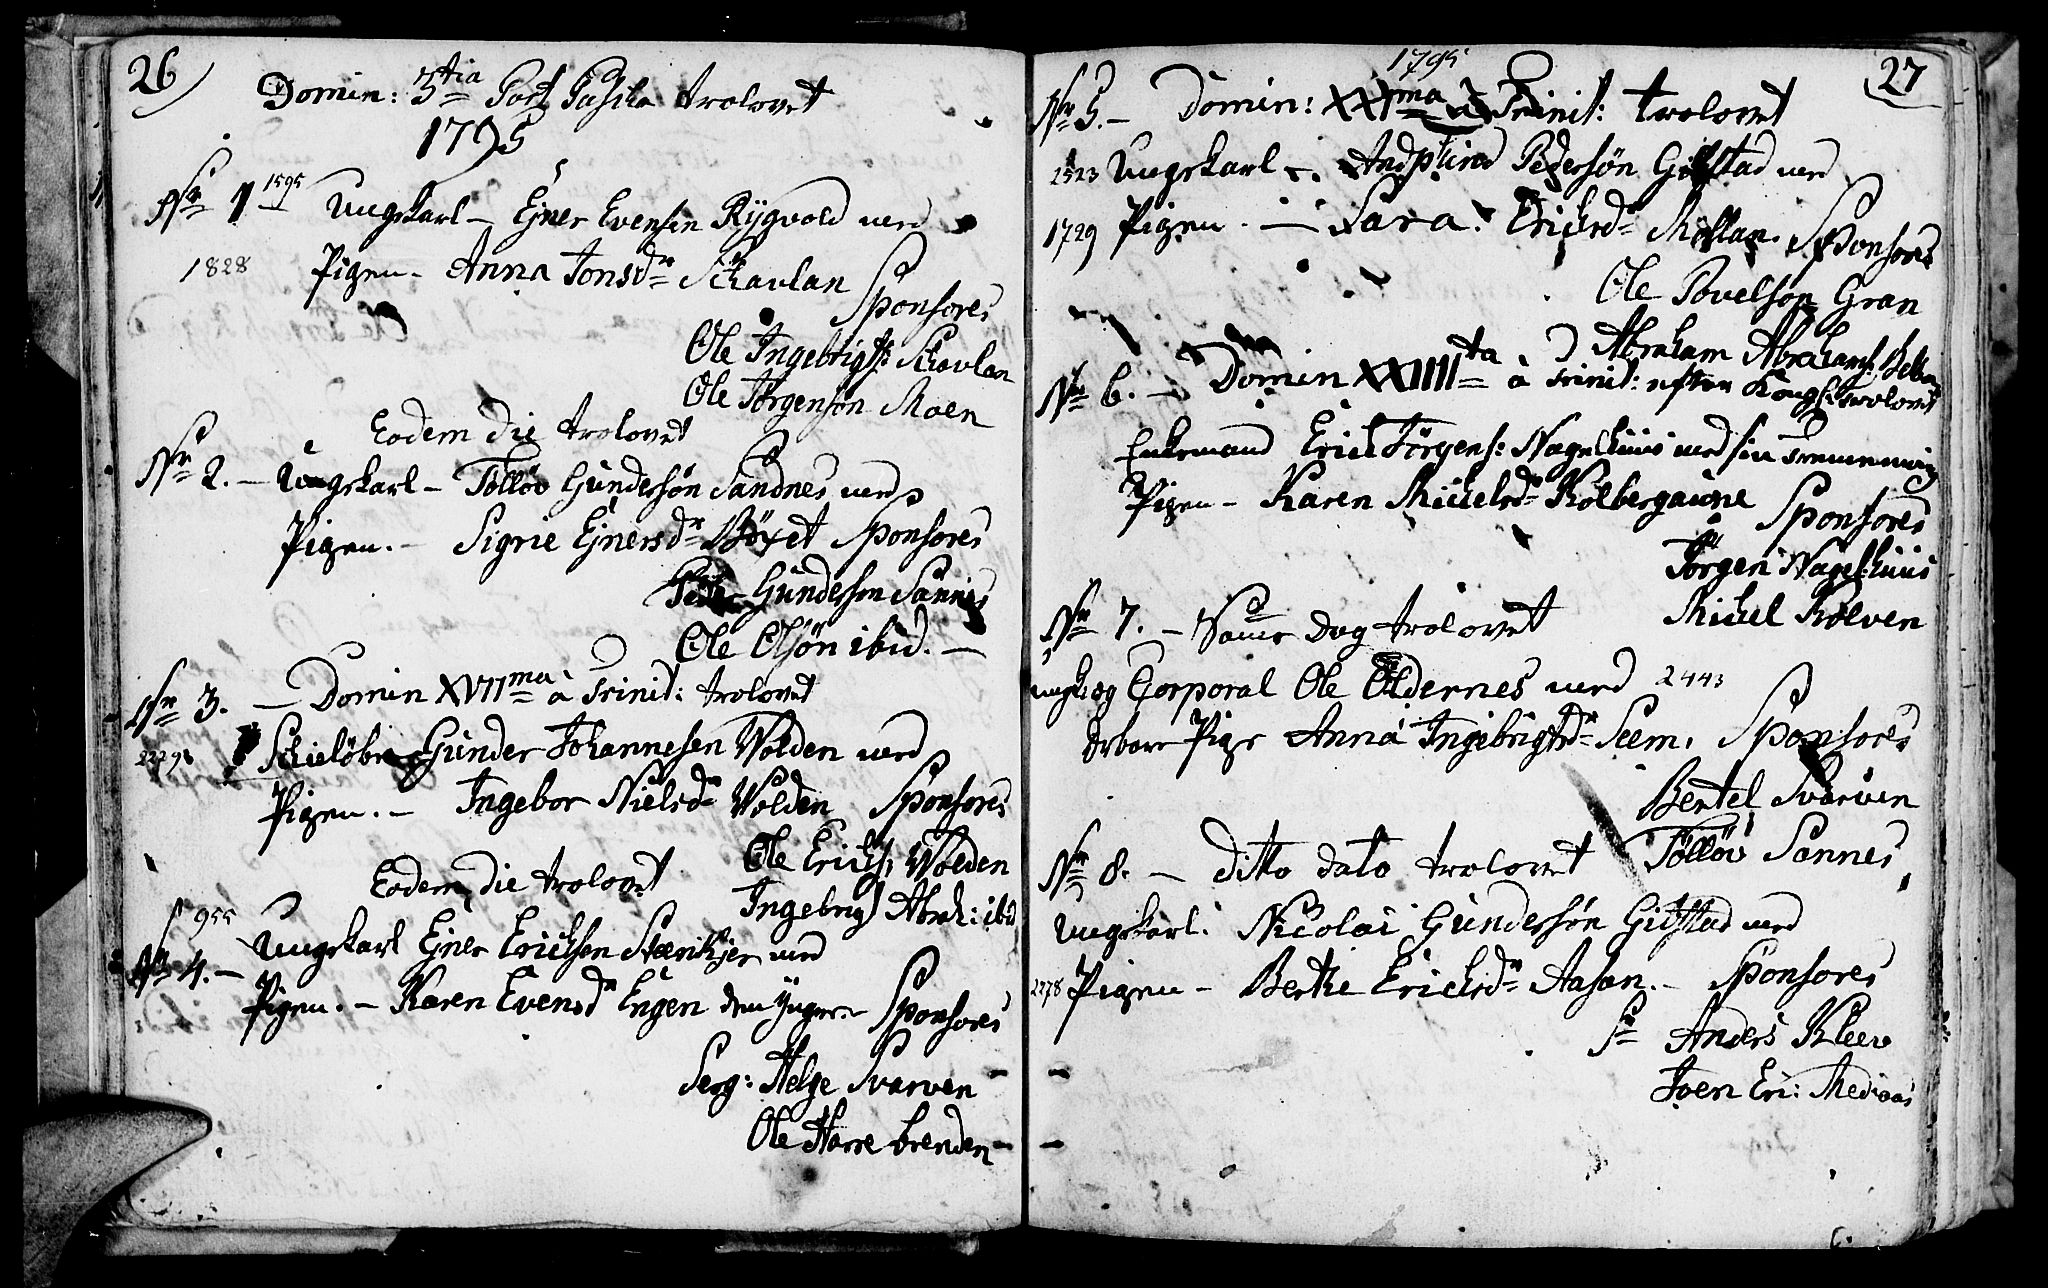 26
Domin: 3tia Post Pascha trolovet
1795
Nr 1 1595 Ungekarl - Ejner Evensen Rygvold med
1828 Pigen - Anna Jonsdr Schavlan
Sponsores
Ole Ingebrigts: Schavlan
Ole Jørgensøn Moen
Eodem die trolovet
Nr 2. - Ungekarl - Tølløv Gundersøn Sandnes med
Pigen. - Sigrie Ejnersdr Sponsores
Gundersøn Sannes
Ole Olsøn ibid. -
Nr 3. - Domin XVIIma à Trinit: trolovet
Schieløber Gunder Johannesen Wolden med
Pigen. - Ingebor Nielsdr Wolden Sponsores
Ole Erichs: Wolden
Ingebrigt Abrah: ibid
Eodem die trolovet
955
Nr 4. - Ungekarl Ejner Erichsen med
Pigen. - Karen Evensdr Engen den yngere Sponsores
Serg: Helge Svarven -
Ole Harrebrenden -
1795
27
Nr 5. - Domin: XXIma à Trinit: trolovet
2523 Ungekarl - Pedersøn Gilstad med
1729 Pigen. - Sara Erichsdr Møllan. Sponsores
Ole Povelsøn Gran
Abraham Abrahams:
Nr 6. - Domin XXIIIIta à Trinit: efter Kongl: trolovet
Enkemand Erich Jørgens: Nagelhuus med sin
Pigen - Karen Michelsdr Kolbergaune
Sponsores
Jørgen Nagelhuus
Michel Kolven
Nr 7. - Samme Dag trolovet
og Corporal Ole Oldernes med 2443
Pige Anna Ingebrigtsdr Seem. Sponsores
Bertel Svarven
Tølløv Sannes,
Nr 8. - Ditto dato trolovet
Ungekarl. Nicolai Gundersøn Gilstad med
2278 Pigen - Berthe Erichsdr Aasan. - Sponsores
Sr Anders Kleev
Joen Eri: Mediaas